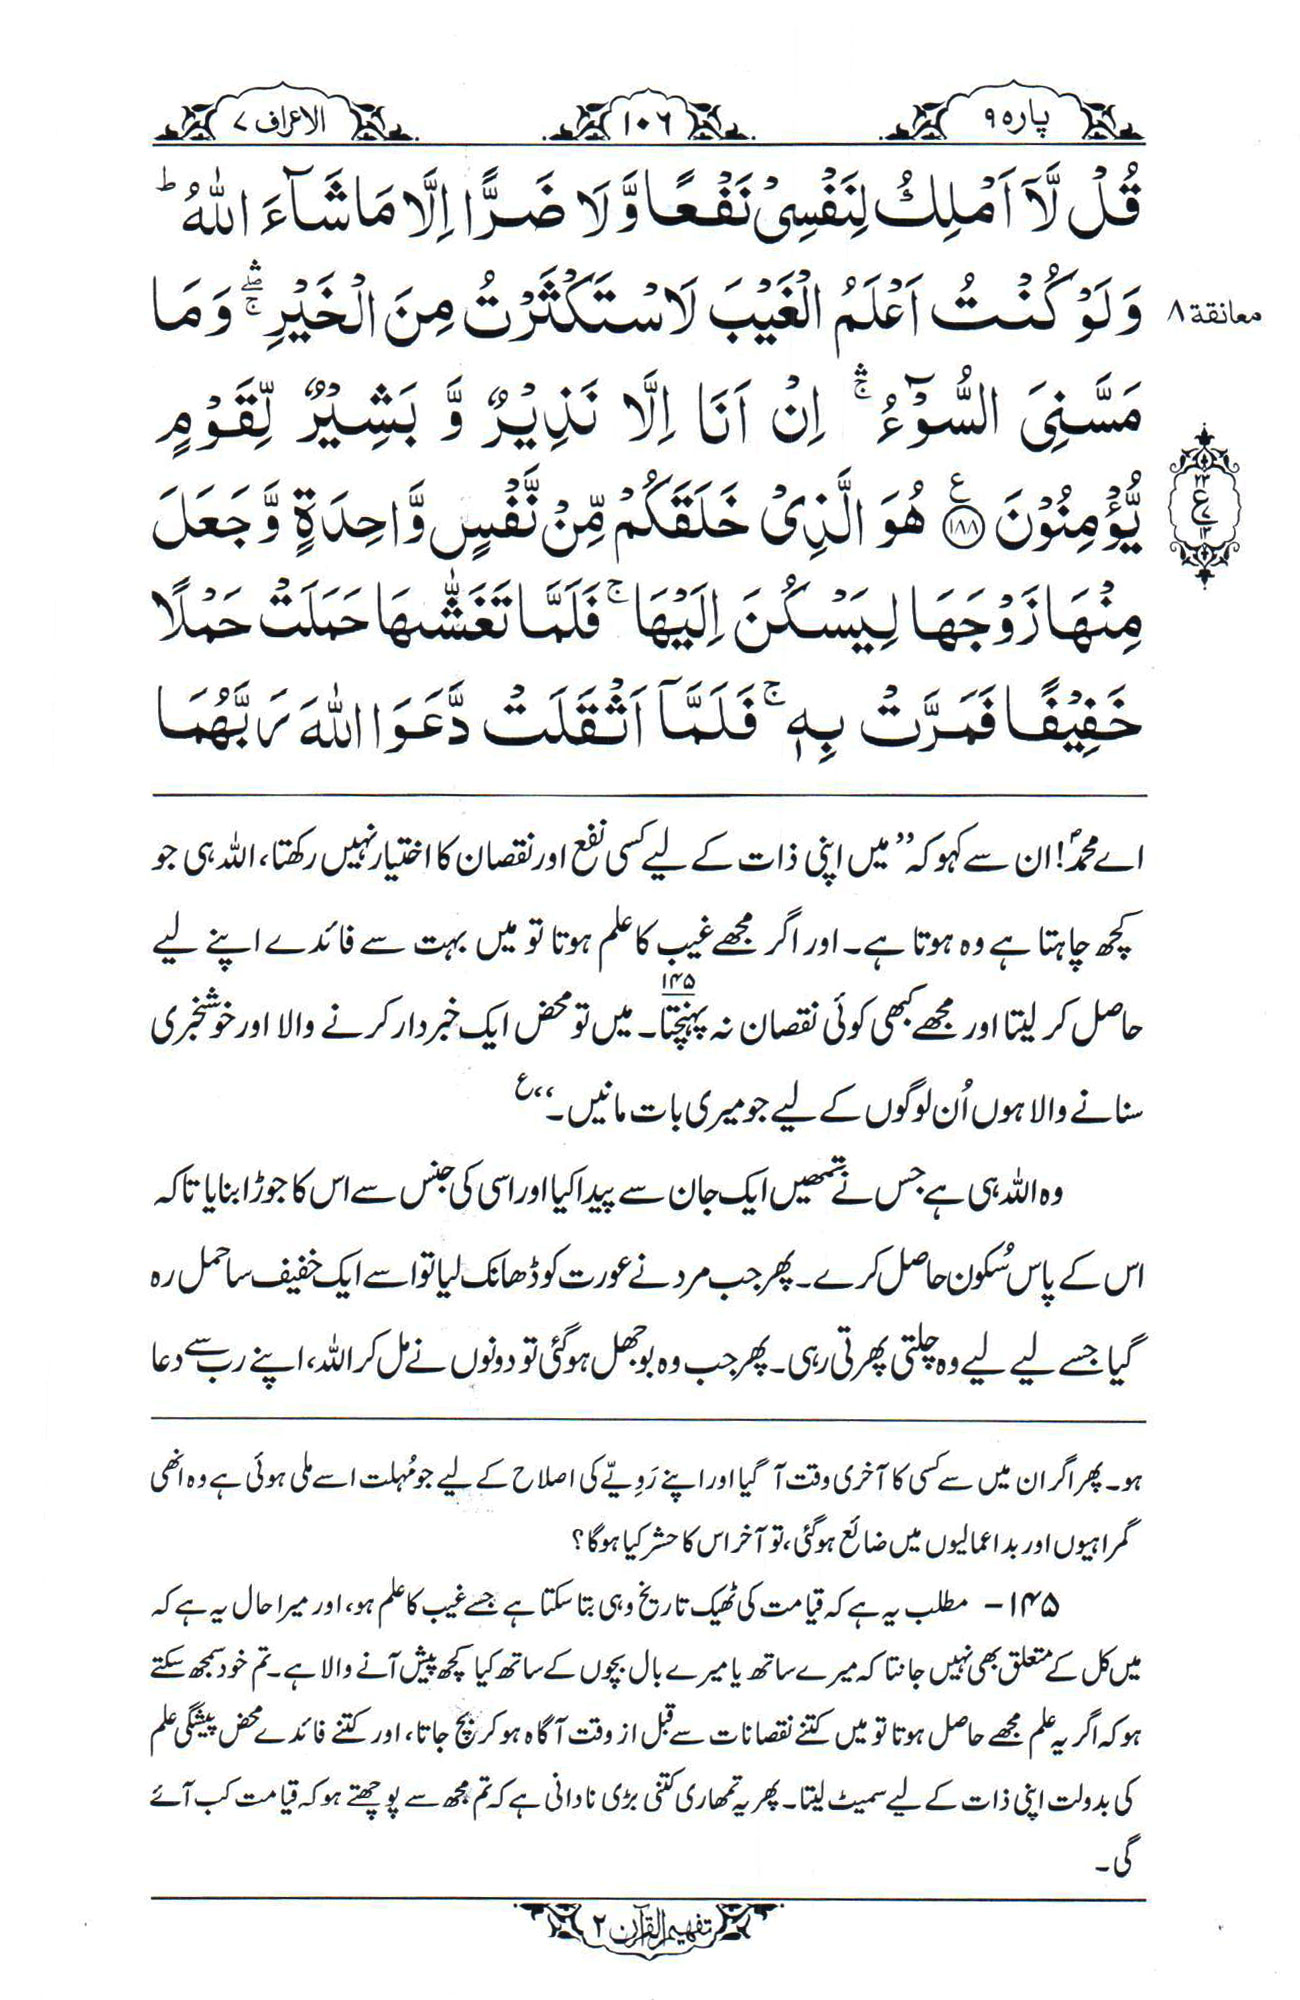 پارہ ۹
۱۰۶
الاعراف ۷
قُلْ لَّاۤ اَمْلِكُ لِنَفْسِیْ نَفْعًا وَّلَا ضَرًّا اِلَّا مَا شَآءَ اللّٰهُ ؕ
وَلَوْ كُنْتُ اَعْلَمُ الْغَیْبَ لَاسْتَكْثَرْتُ مِنَ الْخَیْرِ ۛۚ وَمَا
معانقة ۸
مَسَّنِیَ السُّوْٓءُ ۛۚ اِنْ اَنَا اِلَّا نَذِیْرٌ وَّ بَشِیْرٌ لِّقَوْمٍ
یُّؤْمِنُوْنَ ﴿۱۸۸﴾ ع هُوَ الَّذِیْ خَلَقَكُمْ مِّنْ نَّفْسٍ وَّاحِدَةٍ وَّجَعَلَ
۲۳
ع
۷
۱۳
مِنْهَا زَوْجَهَا لِیَسْكُنَ اِلَیْهَا ۚ فَلَمَّا تَغَشّٰىهَا حَمَلَتْ حَمْلًا
خَفِیْفًا فَمَرَّتْ بِهٖ ۚ فَلَمَّاۤ اَثْقَلَتْ دَّعَوَا اللّٰهَ رَبَّهُمَا
اے محمدؐ! ان سے کہو کہ ”میں اپنی ذات کے لیے کسی نفع اور نقصان کا اختیار نہیں رکھتا، اللہ ہی جو
کچھ چاہتا ہے وہ ہوتا ہے۔ اور اگر مجھے غیب کا علم ہوتا تو میں بہت سے فائدے اپنے لیے
حاصل کر لیتا اور مجھے کبھی کوئی نقصان نہ پہنچتا۔۱۴۵ میں تو محض ایک خبردار کرنے والا اور خوشخبری
سنانے والا ہوں اُن لوگوں کے لیے جو میری بات مانیں۔“ ع
وہ اللہ ہی ہے جس نے تمھیں ایک جان سے پیدا کیا اور اسی کی جنس سے اس کا جوڑا بنایا تاکہ
اس کے پاس سُکون حاصل کرے۔ پھر جب مرد نے عورت کو ڈھانک لیا تو اسے ایک خفیف سا حمل رہ
گیا جسے لیے لیے وہ چلتی پھرتی رہی۔ پھر جب وہ بوجھل ہوگئی تو دونوں نے مل کر اللہ، اپنے رب سے دعا
ہو۔ پھر اگر ان میں سے کسی کا آخری وقت آ گیا اور اپنے رَوِیّے کی اصلاح کے لیے جو مُہلت اسے ملی ہوئی ہے وہ انھی
گمراہیوں اور بداعمالیوں میں ضائع ہوگئی، تو آخر اس کا حشر کیا ہوگا؟
۱۴۵ – مطلب یہ ہے کہ قیامت کی ٹھیک تاریخ وہی بتا سکتا ہے جسے غیب کا علم ہو، اور میرا حال یہ ہے کہ
میں کل کے متعلق بھی نہیں جانتا کہ میرے ساتھ یا میرے بال بچوں کے ساتھ کیا کچھ پیش آنے والا ہے۔ تم خود سمجھ سکتے
ہو کہ اگر یہ علم مجھے حاصل ہوتا تو میں کتنے نقصانات سے قبل از وقت آگاہ ہو کر بچ جاتا، اور کتنے فائدے محض پیشگی علم
کی بدولت اپنی ذات کے لیے سمیٹ لیتا۔ پھر یہ تمھاری کتنی بڑی نادانی ہے کہ تم مجھ سے پوچھتے ہو کہ قیامت کب آئے
گی۔
تفہیم القرآن ۲